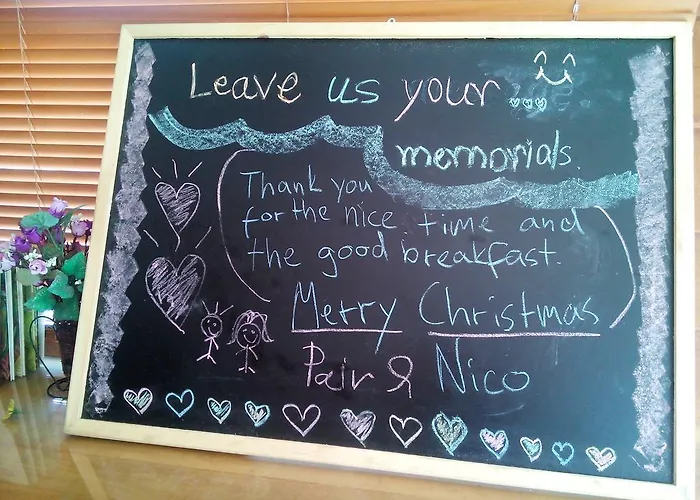 Leave us your
memorials.
Thank you
for the nice time and
the good breakfast.
Merry Christmas
Pair & Nico